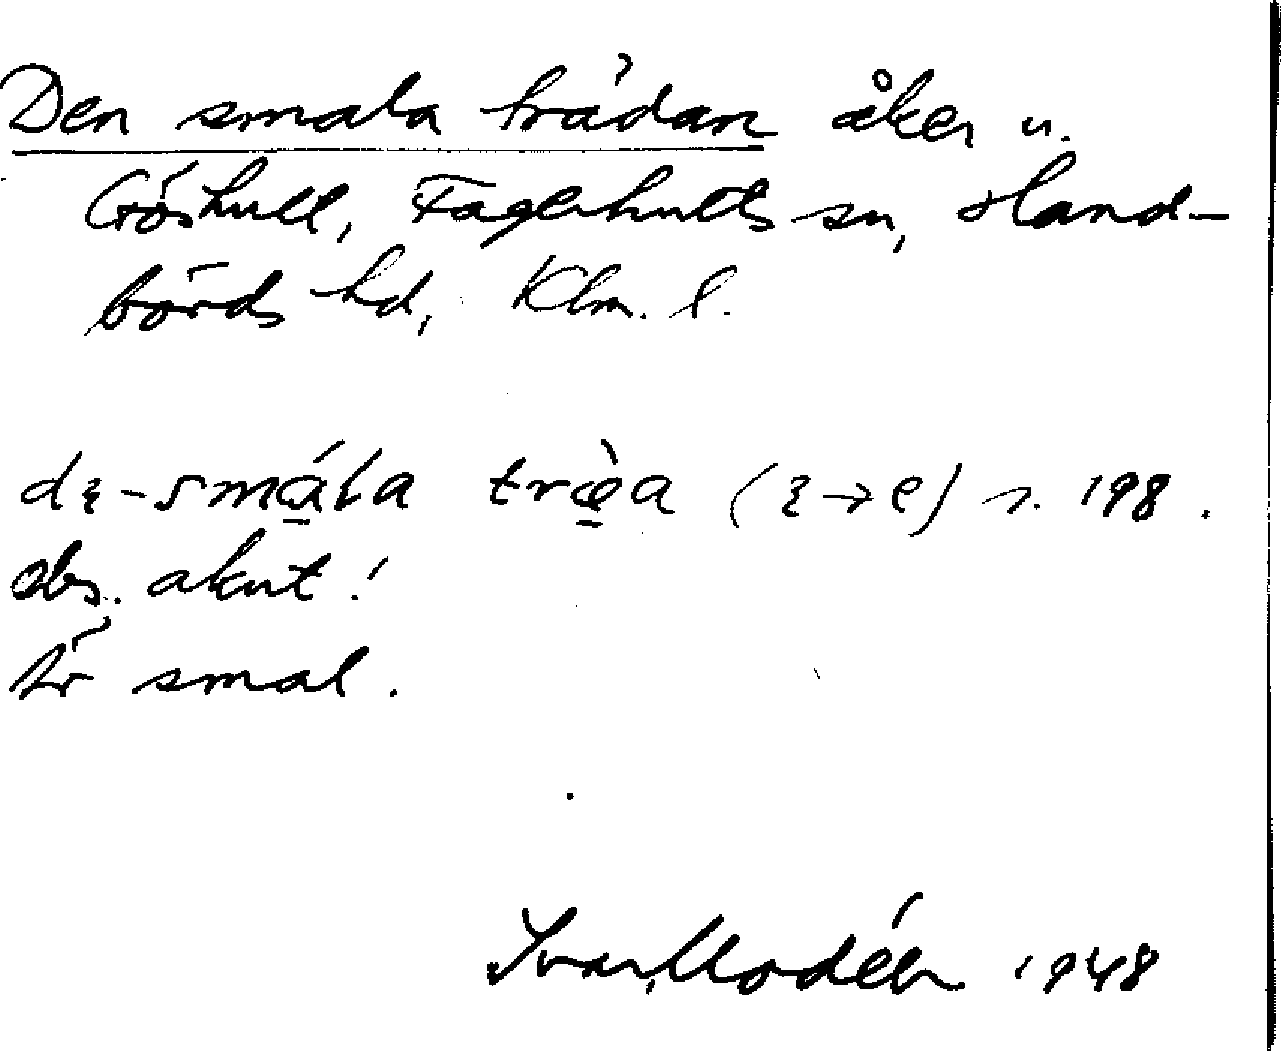 Den smala trädan åker u.
Göshult, Fagerhults sn, Hand-
börds hd, Klm. l.
smála træ̀a s. 198.
obs. akut!
Är smal.
Ivar Modéer 1948